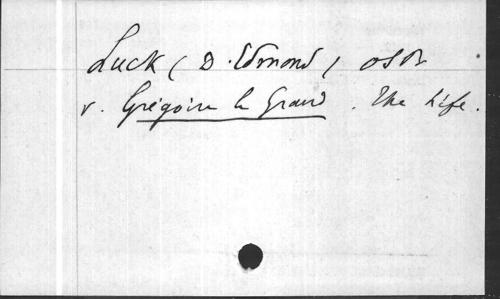 Luck (D. Edmond) OSB
v. Grégoire le Grand. The Life.